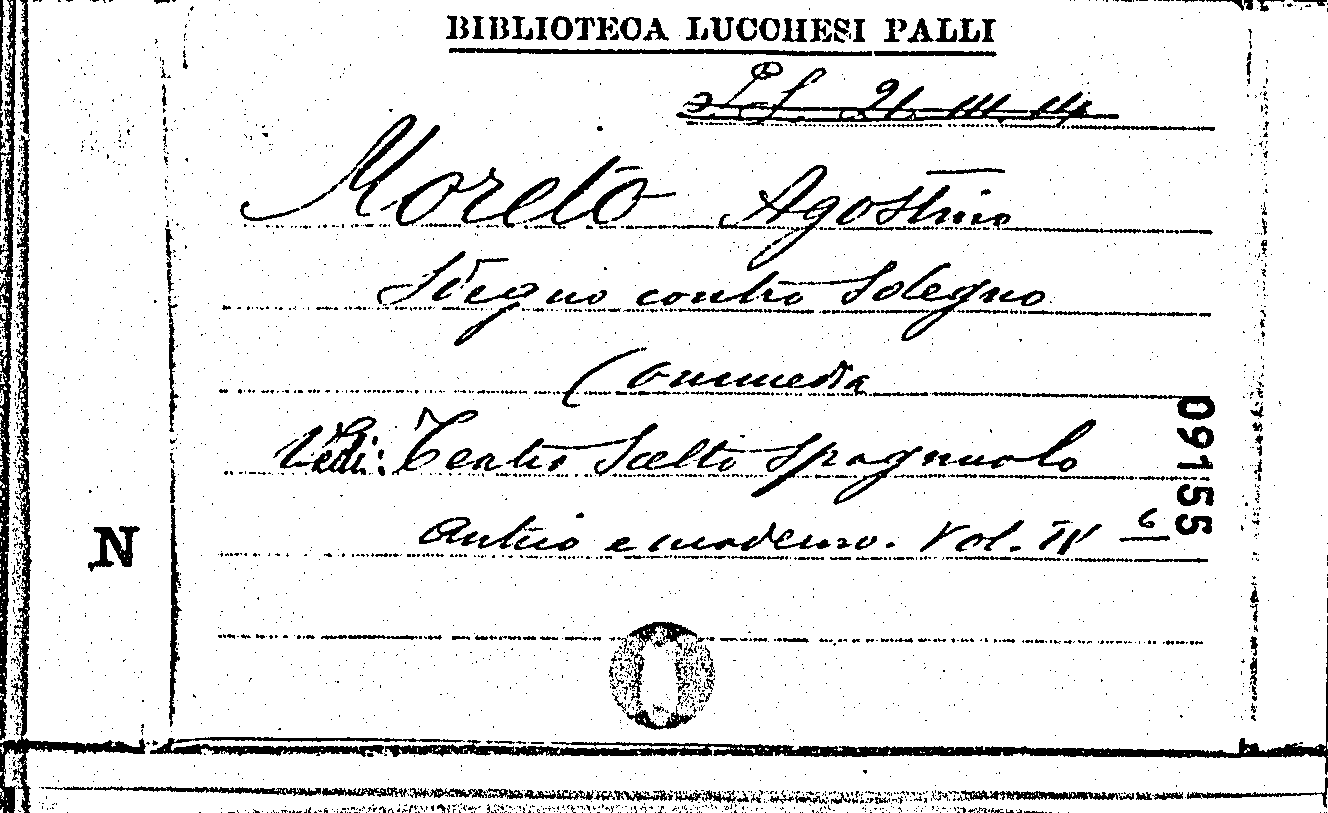 BIBLIOTECA LUCCHESI PALLI
L.S. 21. III. 14
Moreto Agostino
Sdegno contro Sdegno
Commedia
Vedi: Teatro Scelto Spagnuolo
antico e moderno. Vol. IV 6
09155
N